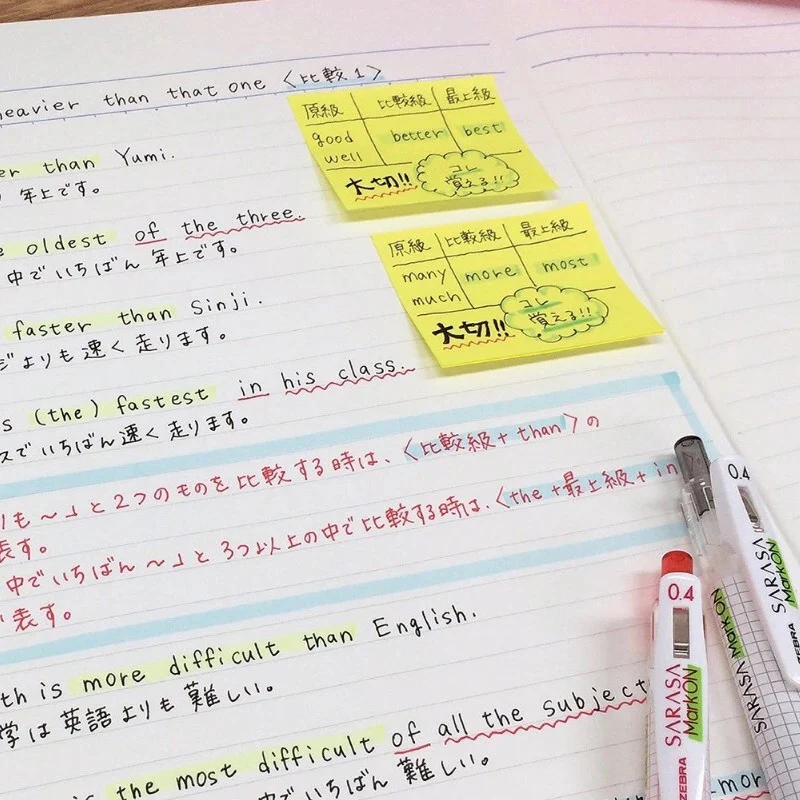 heavier than that one 〈比較1〉
原級 比較級 最上級
good better best
well
大切!! コレ
覚える!!
than Yumi.
年上です。
oldest of the three.
中でいちばん年上です。
原級 比較級 最上級
many more most
much
大切!! コレ
覚える!!
faster than Sinji.
よりも速く走ります。
(the) fastest in his class.
スでいちばん速く走ります。
りも~」と2つのものを比較する時は、〈比較級+than〉の
表す。
中でいちばん~」と3つ以上の中で比較する時は、〈the+最上級+in
表す。
more difficult than English.
学は英語よりも難しい。
the most difficult of all the subject
中でいちばん難しい。
0.4
SARASA
MarkON
ZEBRA
SARASA MarkON
0.4
SARASA
MarkON
ZEBRA